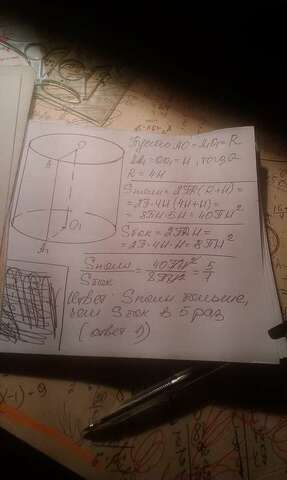 Пусть AO = A₁O₁ = R
AA₁ = OO₁ = H, тогда
R = 4H
Sполн = 2ПR(R+H) =
= 2П·4H(4H+H) =
= 8ПH·5H = 40ПH²
Sбок = 2ПRH =
= 2П·4H·H = 8ПH²
Sполн/Sбок = 40ПH²/8ПH² = 5/1
Ответ: Sполн больше,
чем Sбок в 5 раз
(ответ
O
A
O₁
A₁